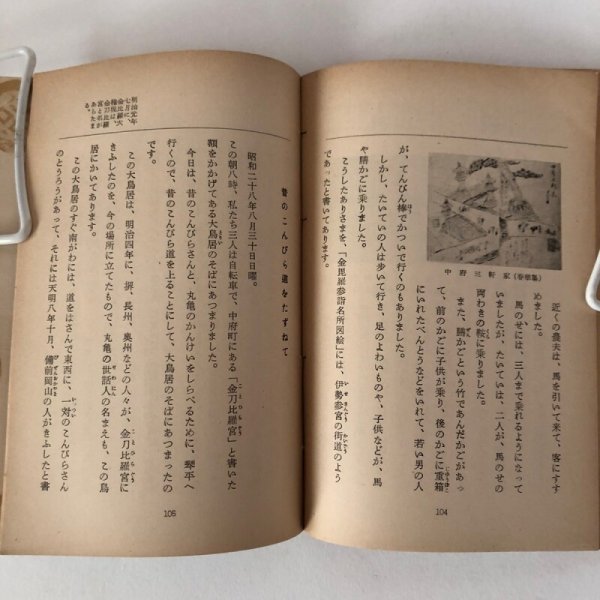 中府三軒家(春亭画)
近くの農夫は、馬を引いて来て、客にすす
めました。
馬のせには、三人まで乗れるようになって
いましたが、たいていは、二人が、馬のせの
両わきの鞍に乗りました。
また、勝かごという竹であんだかごがあっ
て、前のかごに子供が乗り、後のかごに重箱
にいれたべんとうなどをいれて、若い男の人
が、てんびん棒でかついで行くのもありました。
しかし、たいていの人は歩いて行き、足のよわいものや、子供などが、馬
や勝かごに乗りました。
こうしたありさまを、「金毘羅参詣名所図絵」には、伊勢参宮の街道のよう
であったと書いてあります。
104
昔のこんぴら道をたずねて
昭和二十八年八月三十日日曜。
この朝八時、私たち三人は自転車で、中府町にある「金刀比羅宮」と書いた
額をかかげてある大鳥居のそばにあつまりました。
今日は、昔のこんぴらさんと、丸亀のかんけいをしらべるために、琴平へ
行くので、昔のこんぴら道を上ることにして、大鳥居のそばにあつまったの
です。
この大鳥居は、明治四年に、堺、長州、奥州などの人々が、金刀比羅宮に
きふしたのを、今の場所に立てたもので、丸亀の世話人の名まえも、この鳥
居にかいてあります。
この大鳥居のすぐ南がわには、道をはさんで東西に、一対のこんぴらさん
のとうろうがあって、それには天明八年十月、備前岡山の人がきふしたと書
明治元年
七月に、
金比羅大
権現は、
金刀比羅
宮と名が
あらたま
る。
105